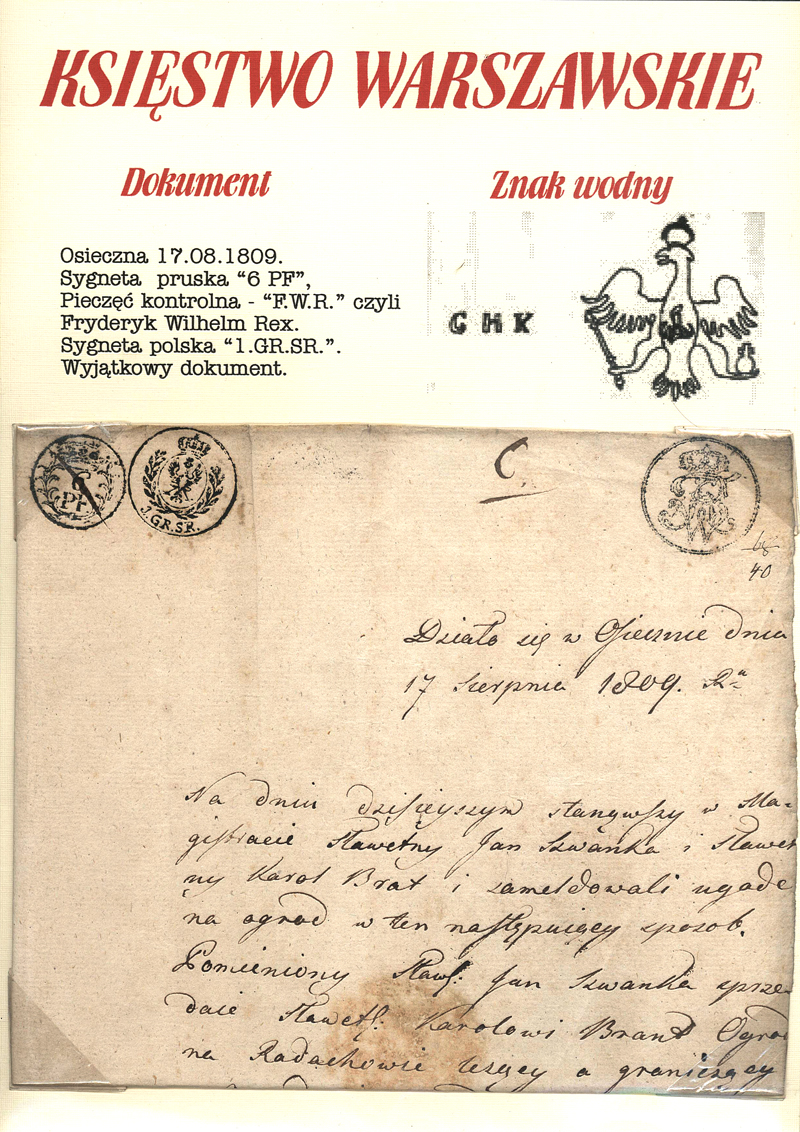 KSIĘSTWO WARSZAWSKIE
Dokument
Znak wodny
Osieczna 17.08.1809.
Sygneta pruska “6 PF”,
Pieczęć kontrolna - “F.W.R.” czyli
Fryderyk Wilhelm Rex.
Sygneta polska “1.GR.SR.”.
Wyjątkowy dokument.
C H K
6
PF
1.GR.SR.
C.
40
Działo się w Osiecznie dnia
17 Sierpnia 1809. R
Na dniu dzisieyszym stanąwszy w Ma-
gistracie Sławetny Jan Szwanka i Sławet
ny Karol Brat i zameldowali ugode
na ogrod w ten następuiący sposob.
Pomieniony Sław: Jan Szwanka sprze
daie Sławet: Karolowi Brant Ogrod
na Radachowie lezący a graniczący